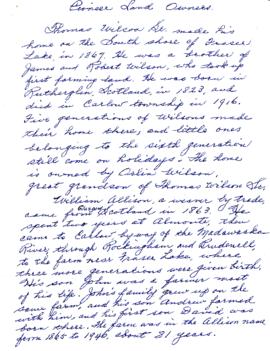 Pioneer Land Owners.
Thomas Wilson Sr. made his
home on the South shore of Fraser
Lake in 1867. He was a brother of
James and Robert Wilson, who took up
first farming land. He was born in
Rutherglen Scotland, in 1823, and
died in Carlow township in 1916.
Five generations of Wilsons made
their home there, and little ones
belonging to the sixth generation
still come on holidays. The home
is owned by Orlin Wilson,
great grandson of Thomas Wilson Sr.
William Allison, a weaver by trade,
came from Scotland in 1863. He
spent two years at Almonte, then
came to Carlow by way of the Madawaska
River, through Rockingham and Brudenell,
to the farm near Fraser Lake, where
three more generations were given birth.
His son John was a farmer most
of his life. John's family grew up on the
same farm, and his son Andrew farmed
with him, and his first son David was
born there. The farm was in the Allison name
from 1865 to 1946, about 81 years.